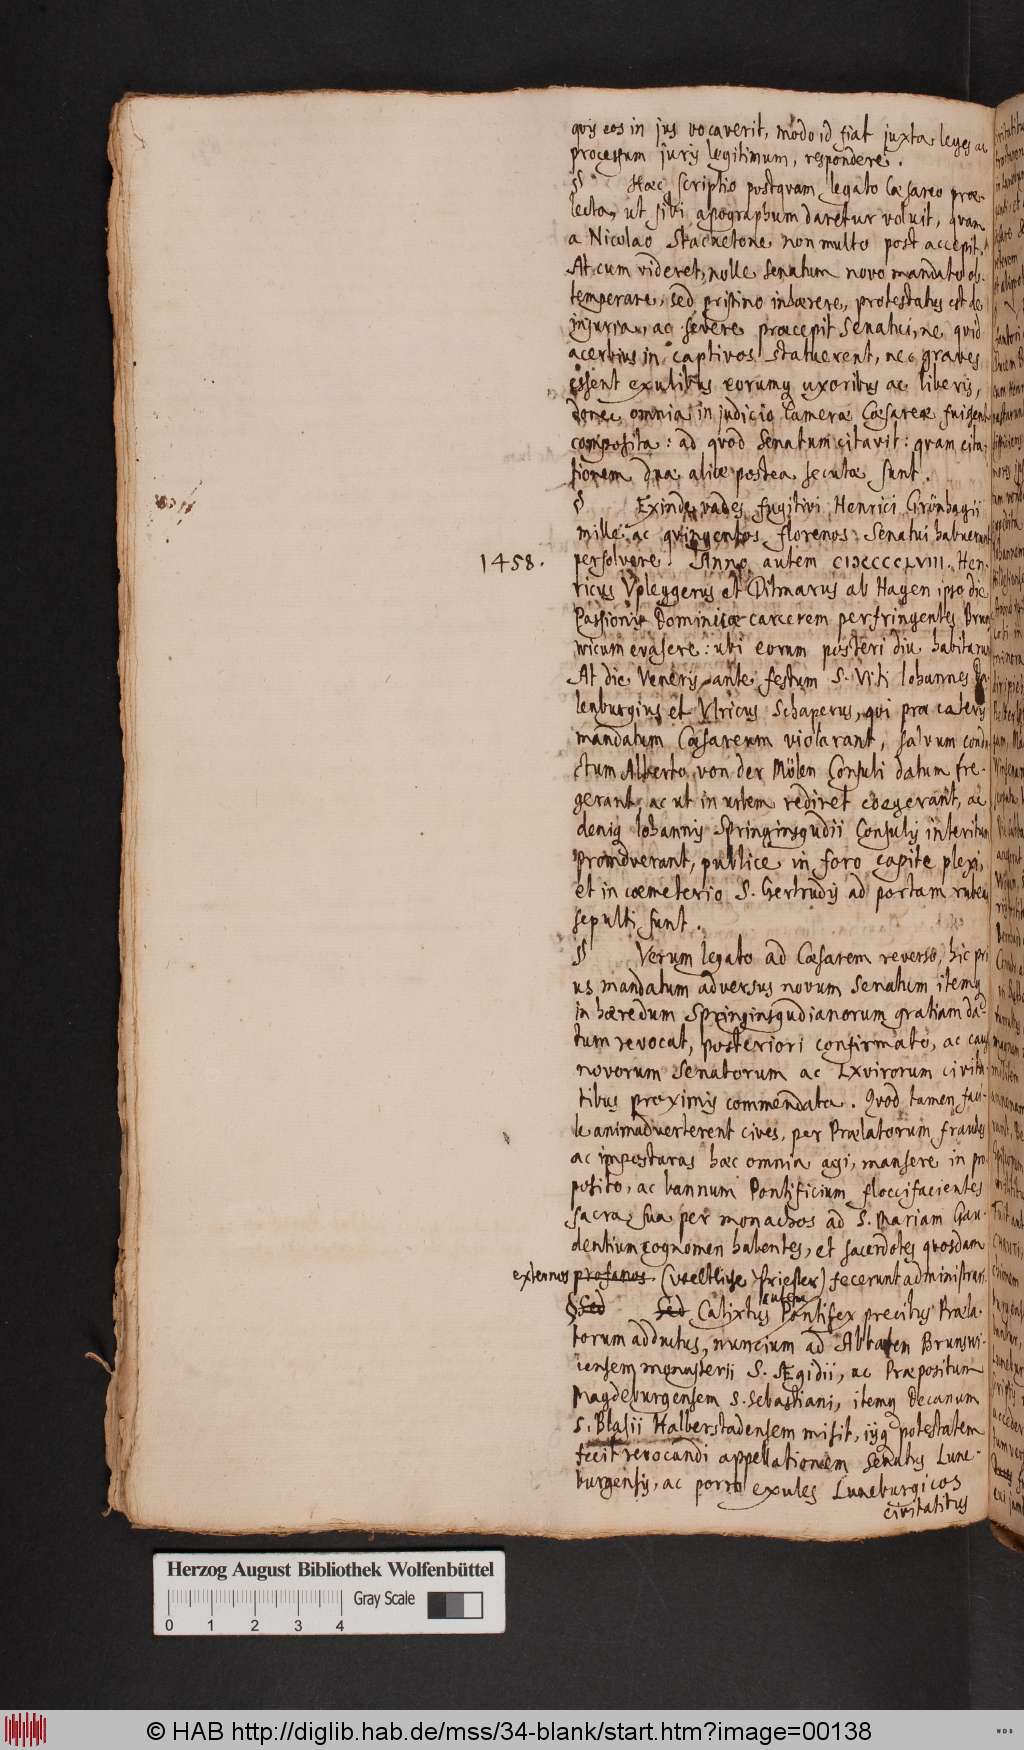 quis eos in jus vocaverit, modo id fiat juxta leges ac
processum juris legitimum, respondere.
§ Hæc scriptio postquam legato Cæsareo præ-
lecta, ut sibi apographum daretur voluit, quam
a Nicolao Stacketone non multo post accepit.
At cum videret, nolle Senatum novo mandato ob-
temperare, sed pristino inhærere, protestatus est de
injuria, ac severe præcepit Senatui, ne quid
acerbius in captivos statuerent, nec graves
essent exulibus eorumq uxoribus ac liberis,
donec omnia in judicio Cameræ Cæsareæ fuissent
composita: ad quod Senatum citavit: quam cita-
tionem duæ aliæ postea secutæ sunt.
§ Exinde vades fugitivi Henrici Grönhagii
mille ac quingentos florenos Senatui habuerunt
1458.
persolvere. Anno autem CIƆCCCCLVIII. Hen-
ricus Vpleggerus et Ditmarus ab Hagen ipso die
Passionis Dominicæ carcerem perfringentes Bruns
wicum evasere: ubi eorum posteri diu habitarunt
At die Veneris ante festum S. Viti Iohannes
lenburgius et Vlricus Schaperus, qui præ cæteris
mandatum Cæsareum violarant, salvum condu
ctum Alberto von der Mölen Consuli datum fre-
gerant, ac ut in urbem rediret coegerant, ac
deniq Iohannis Springinsgudii Consulis interitum
promoverant, publice in foro capite plexi,
et in cœmeterio S. Gertrudis ad portam rubeam
sepulti sunt.
§ Verum legato ad Cæsarem reverso, hic pri
us mandatum adversus novum Senatum itemq
in hæredum Springinsgudianorum gratiam da-
tum revocat, posteriori confirmato, ac caus
novorum Senatorum ac LXvirorum civita
tibus proximis commendata. Quod tamen faci-
le animadverterent cives, per Prælatorum fraudes
ac imposturas hæc omnia agi, mansere in pro-
posito, ac bannum Pontificium floccifacientes
sacra sua per monachos ad S. Mariam Gau-
dentium cognomen habentes, et sacerdotes quosdam
externos profanos (weltlige Priester) fecerunt administrari.
§ Sed Sed Calixtus autem Pontifex precibus Præla-
torum adductus, nuncium ad Abbatem Brunswi-
censem monasterii S. Ægidii, ac Præpositum
Magdeburgensem S. Sebastiani, itemq Decanum
S. Blasii Halberstadensem misit, iisq potestatem
fecit revocandi appellationem Senatus Lune-
burgensis, ac porro exules Luneburgicos
civitatibus
Herzog August Bibliothek Wolfenbüttel
0 1 2 3 4 Gray Scale
© HAB http://diglib.hab.de/mss/34-blank/start.htm?image=00138
WDB